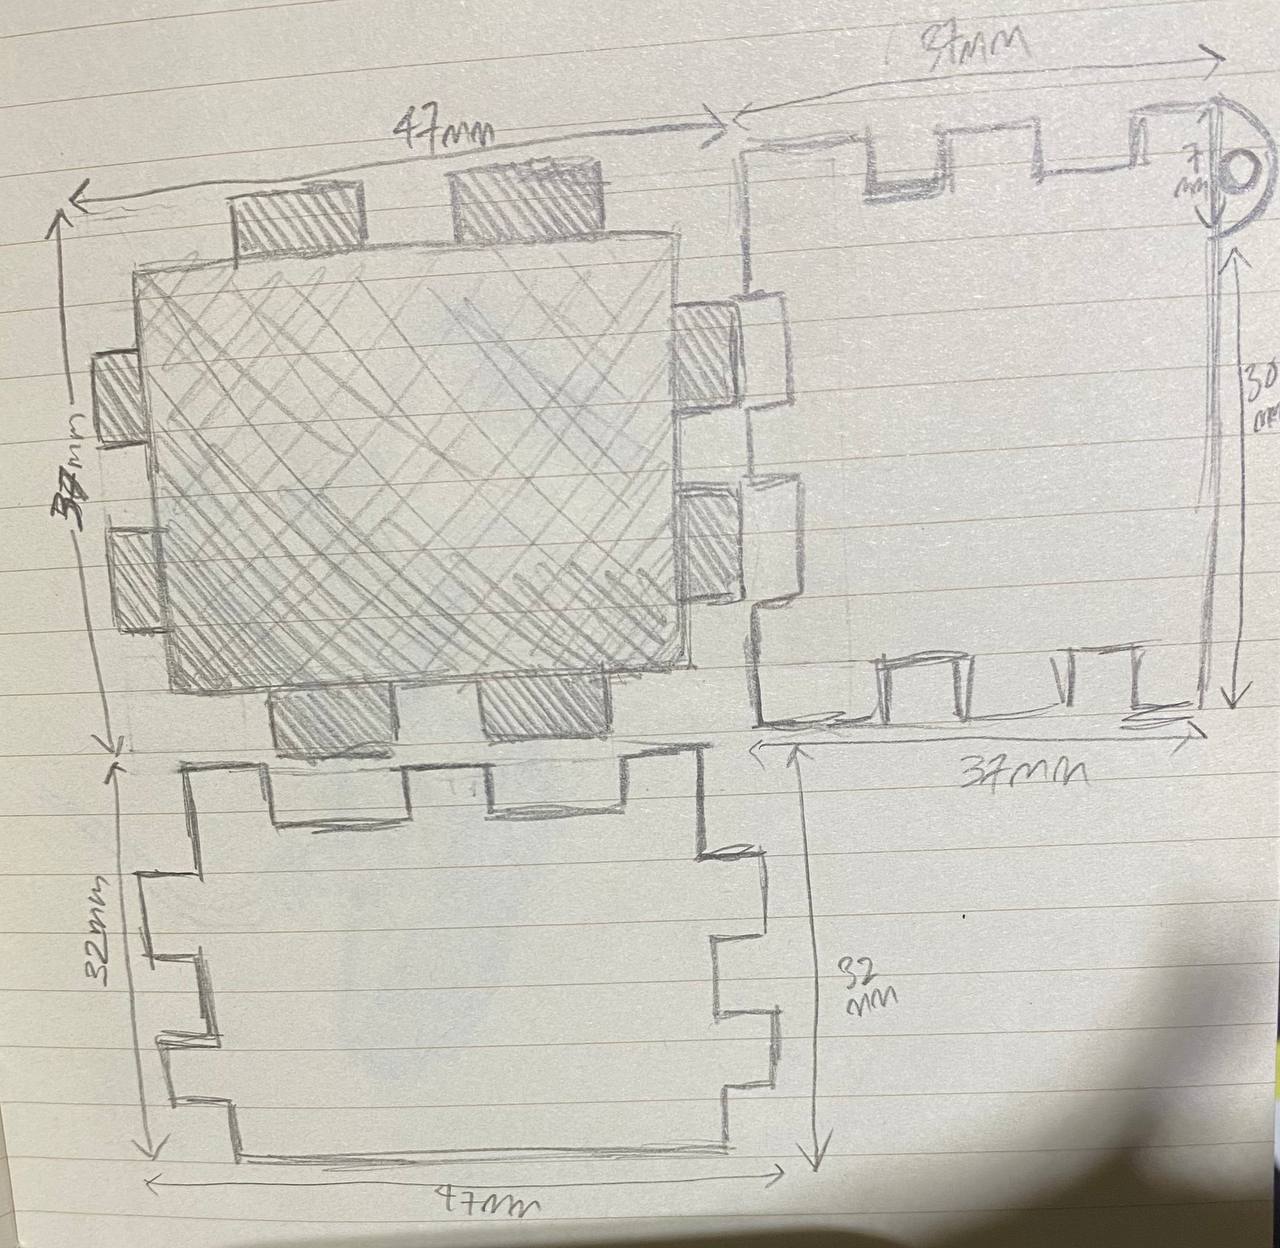 37mm
47mm
7
mm
30
mm
37mm
37mm
32mm
32
mm
47mm